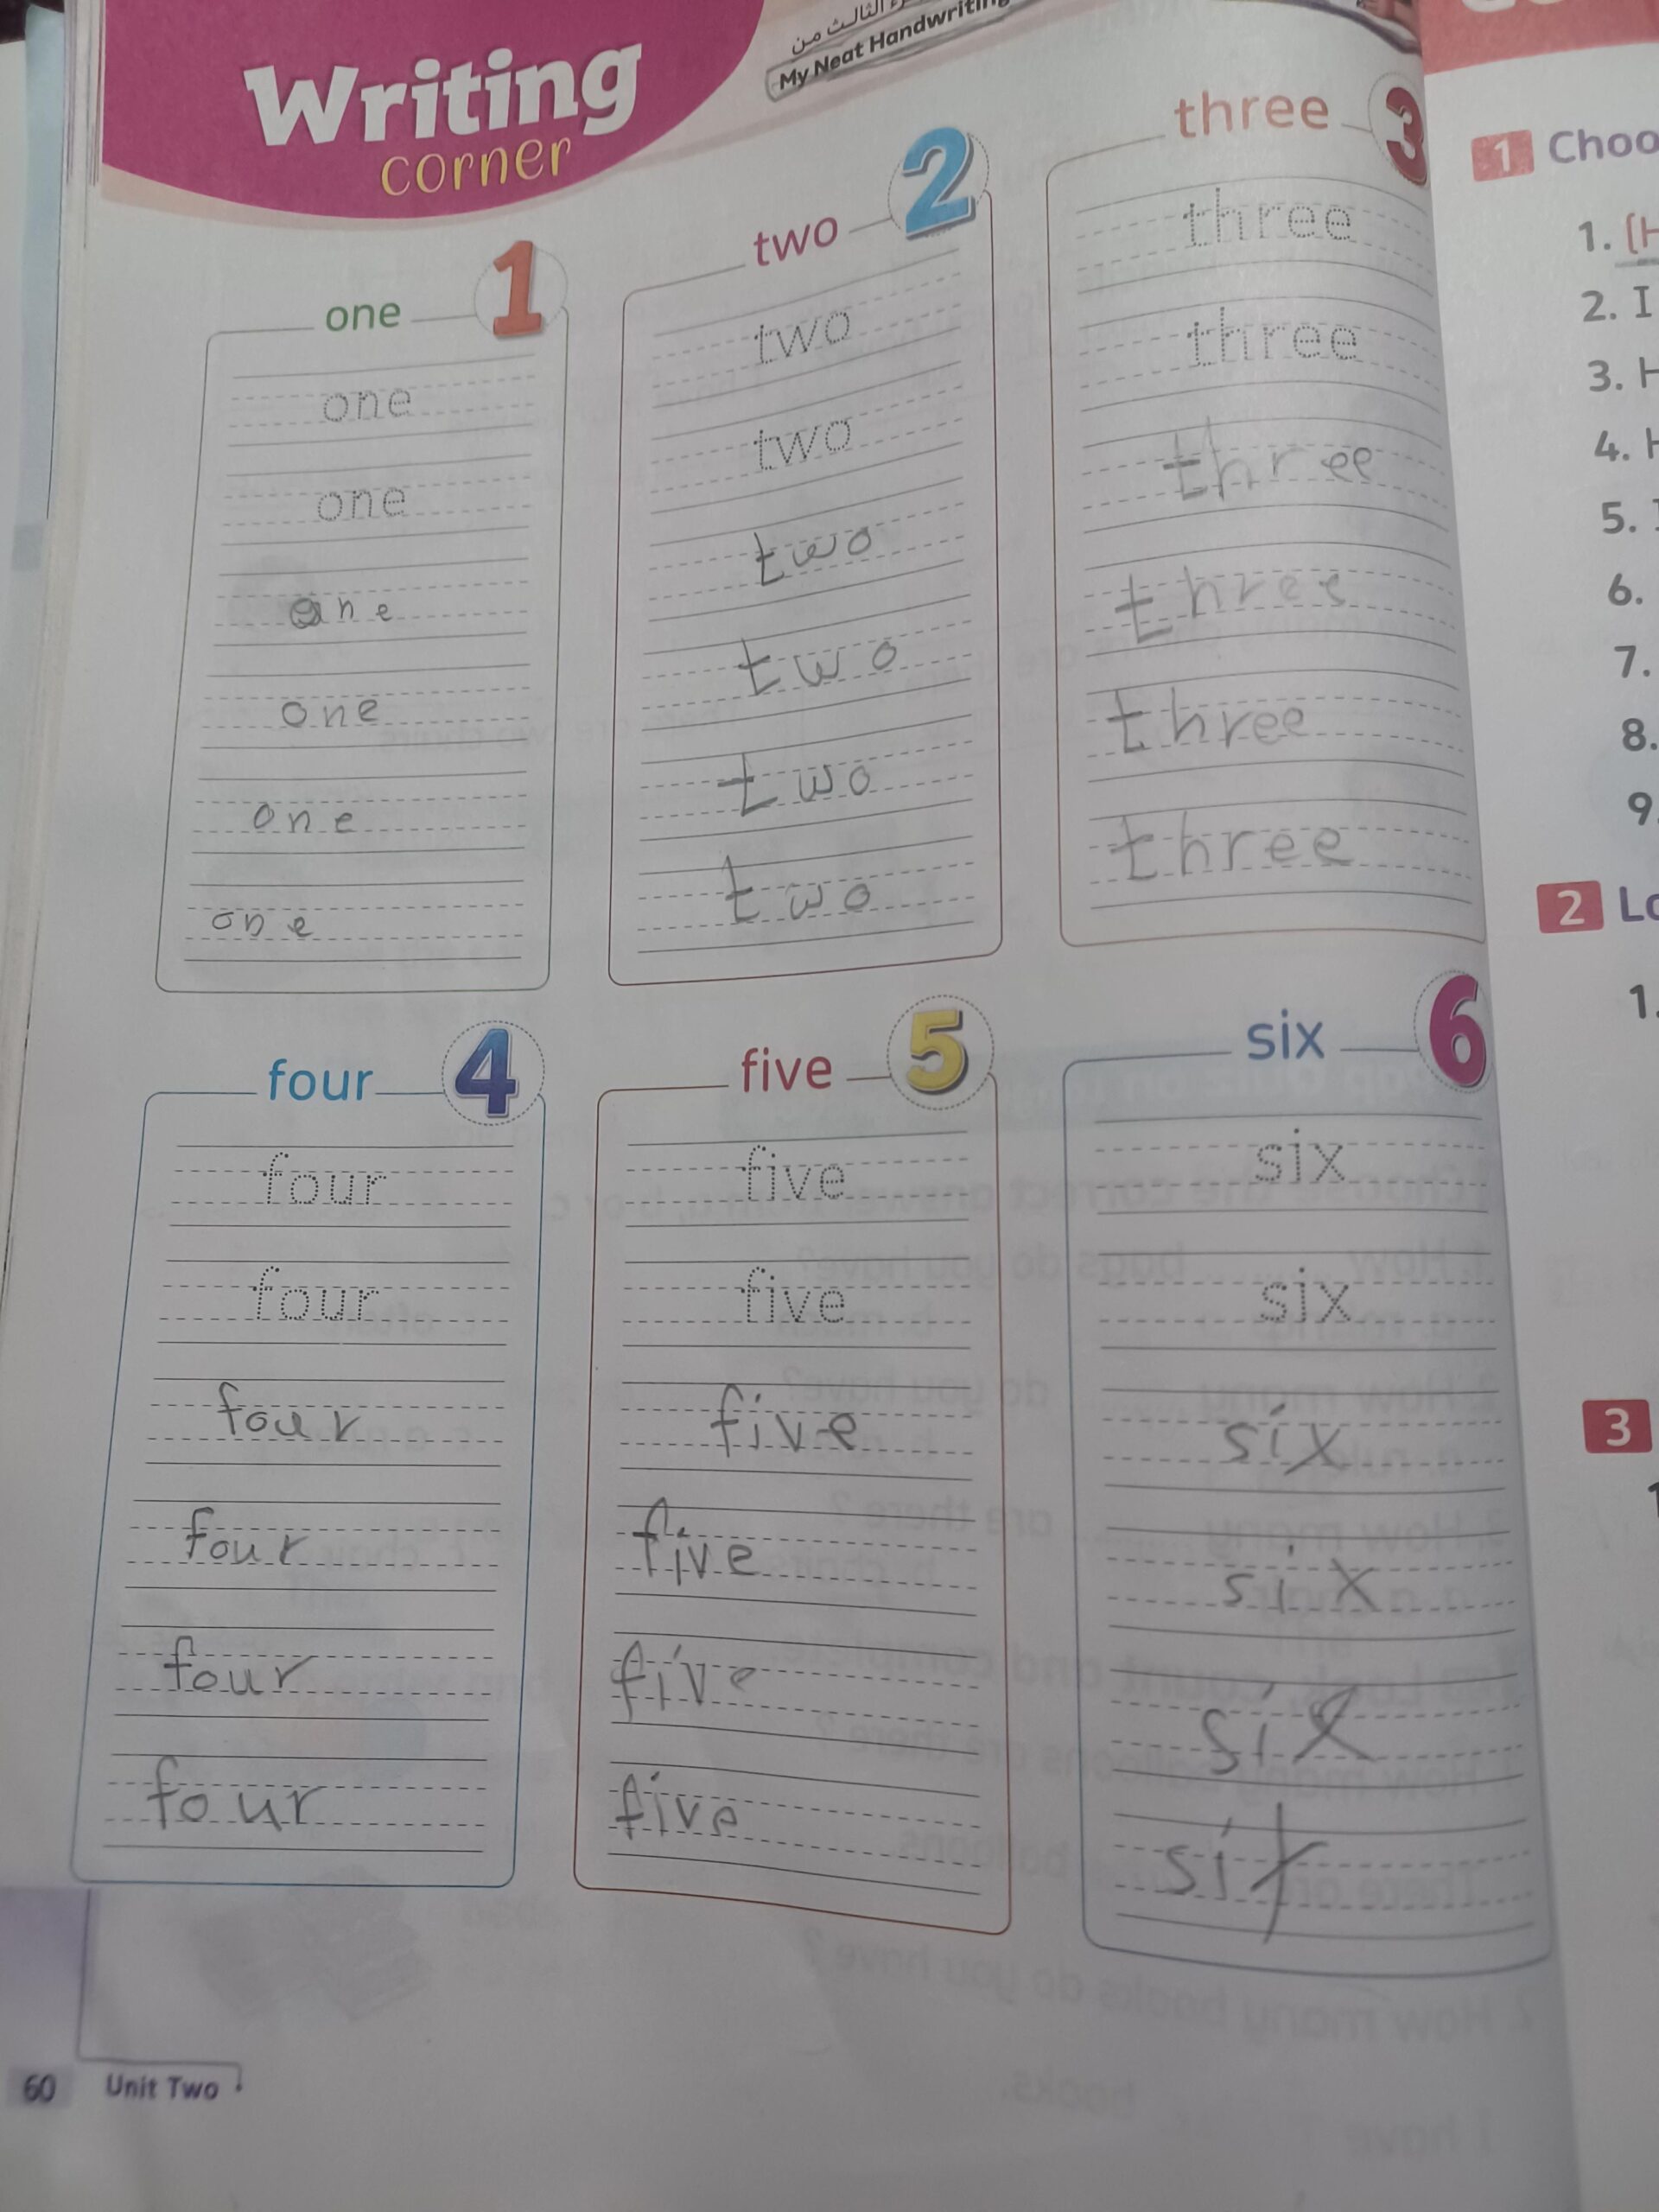 Writing
corner
الثالث من
My Neat Handwriting
one 1
one
one
one
one
one
one
two 2
two
two
two
two
two
two
three 3
three
three
three
three
three
three
four 4
four
four
four
four
four
four
five 5
five
five
five
five
five
five
six 6
six
six
six
six
six
six
60 Unit Two
1
1.
2. I
3.
4.
5.
6.
7.
8.
9.
2
1.
3